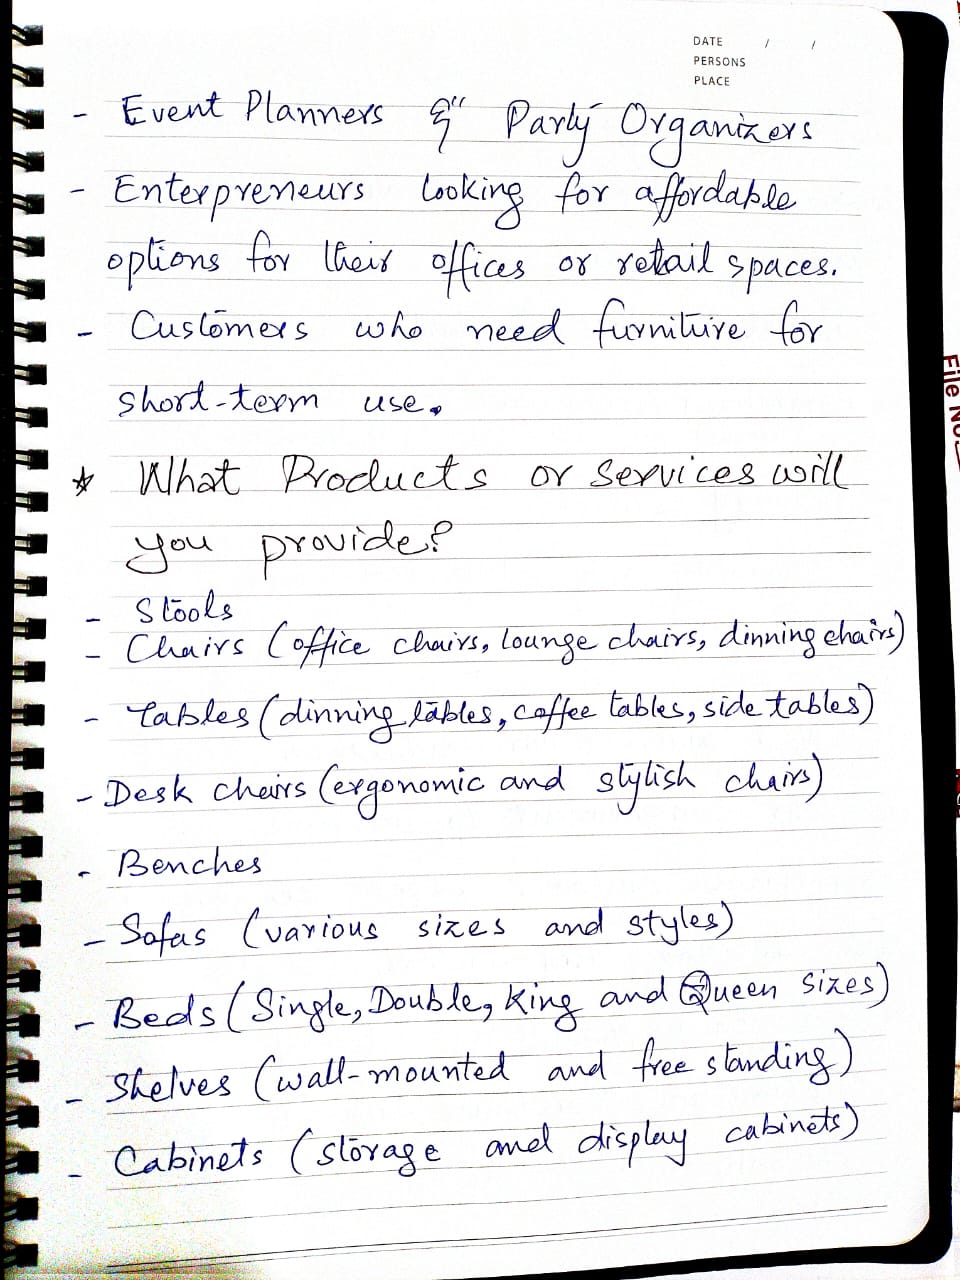 DATE / /
PERSONS
PLACE
- Event Planners & Party Organizers
- Enterpreneurs looking for affordable
options for their offices or retail spaces.
- Customers who need furniture for
short-term use.
☆ What Products or services will
you provide?
- Stools
- Chairs (office chairs, lounge chairs, dinning chairs)
- Tables (dinning tables, coffee tables, side tables)
- Desk chairs (ergonomic and stylish chairs)
- Benches
- Sofas (various sizes and styles)
- Beds (Single, Double, King and Queen Sizes)
- Shelves (wall-mounted and free standing)
- Cabinets (storage and display cabinets)
File No